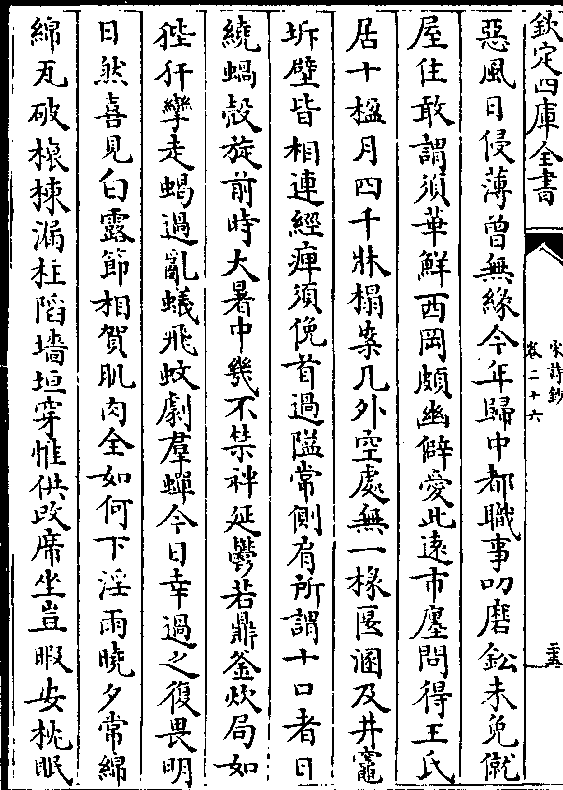 欽定四庫全書
宋詩鈔
卷二十六
三十五
惡風日侵薄曾無緣今年歸中都職事叨磨鈆未免僦
屋住敢謂須華鮮西岡頗幽僻愛此遠市廛問得王氏
居十楹月四千牀榻案几外空處無一椽匽溷及井竈
坼壁皆相連經庳須俛首過隘常側肩所謂十口者日
繞蝸殼旋前時大暑中幾不禁袢延鬱若鼎釡炊局如
狴犴攣走蝎過亂蟻飛蚊劇羣蟬今日幸過之復畏明
日然喜見白露節相賀肌肉全如何下淫雨曉夕常綿
綿瓦破榱揀漏柱陷墻垣穿惟供改席坐豈暇安枕眠